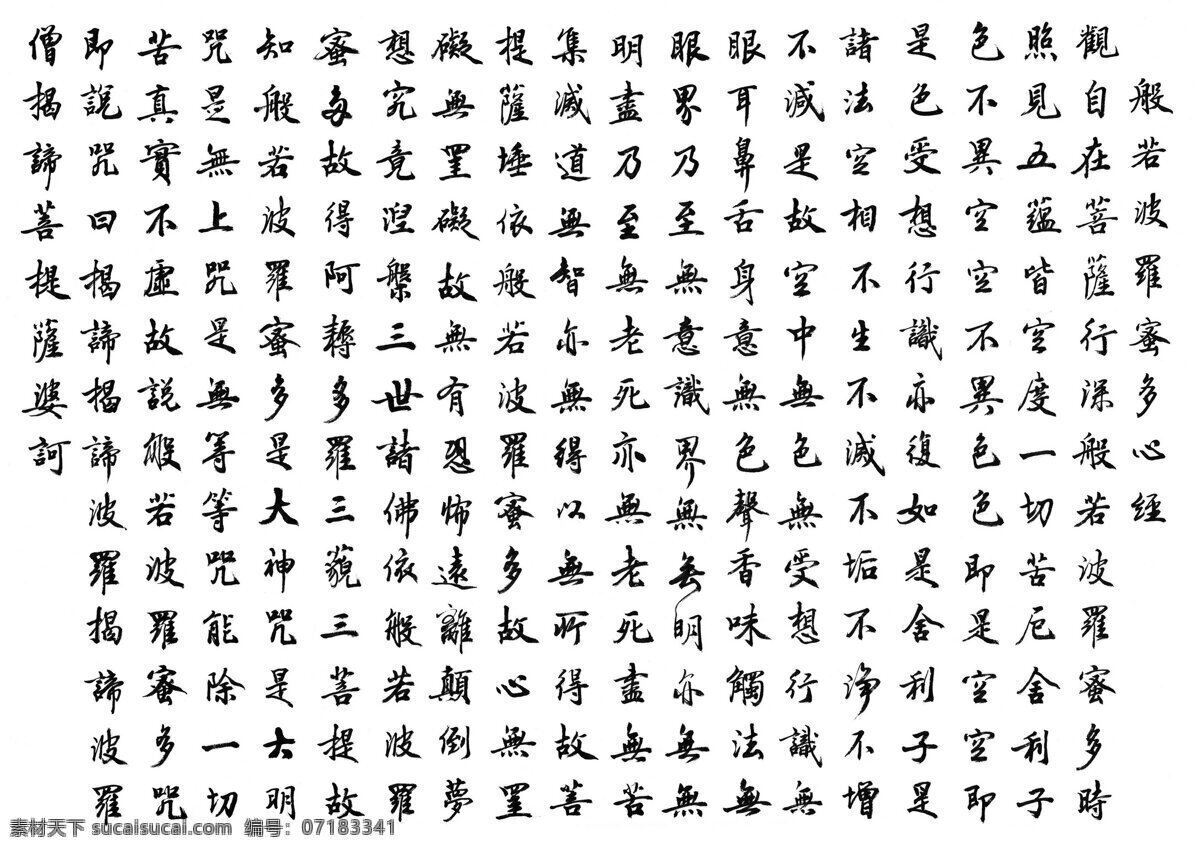 般若波羅蜜多心經
觀自在菩薩行深般若波羅蜜多時
照見五蘊皆空度一切苦厄舍利子
色不異空空不異色色即是空空即
是色受想行識亦復如是舍利子是
諸法空相不生不滅不垢不淨不增
不減是故空中無色無受想行識無
眼耳鼻舌身意無色聲香味觸法無
眼界乃至無意識界無無明亦無無
明盡乃至無老死亦無老死盡無苦
集滅道無智亦無得以無所得故菩
提薩埵依般若波羅蜜多故心無罣
礙無罣礙故無有恐怖遠離顛倒夢
想究竟涅槃三世諸佛依般若波羅
蜜多故得阿耨多羅三藐三菩提故
知般若波羅蜜多是大神咒是大明
咒是無上咒是無等等咒能除一切
苦真實不虛故說般若波羅蜜多咒
即說咒曰揭諦揭諦波羅揭諦波羅
僧揭諦菩提薩婆訶
素材天下 sucaisucai.com 编号：07183341